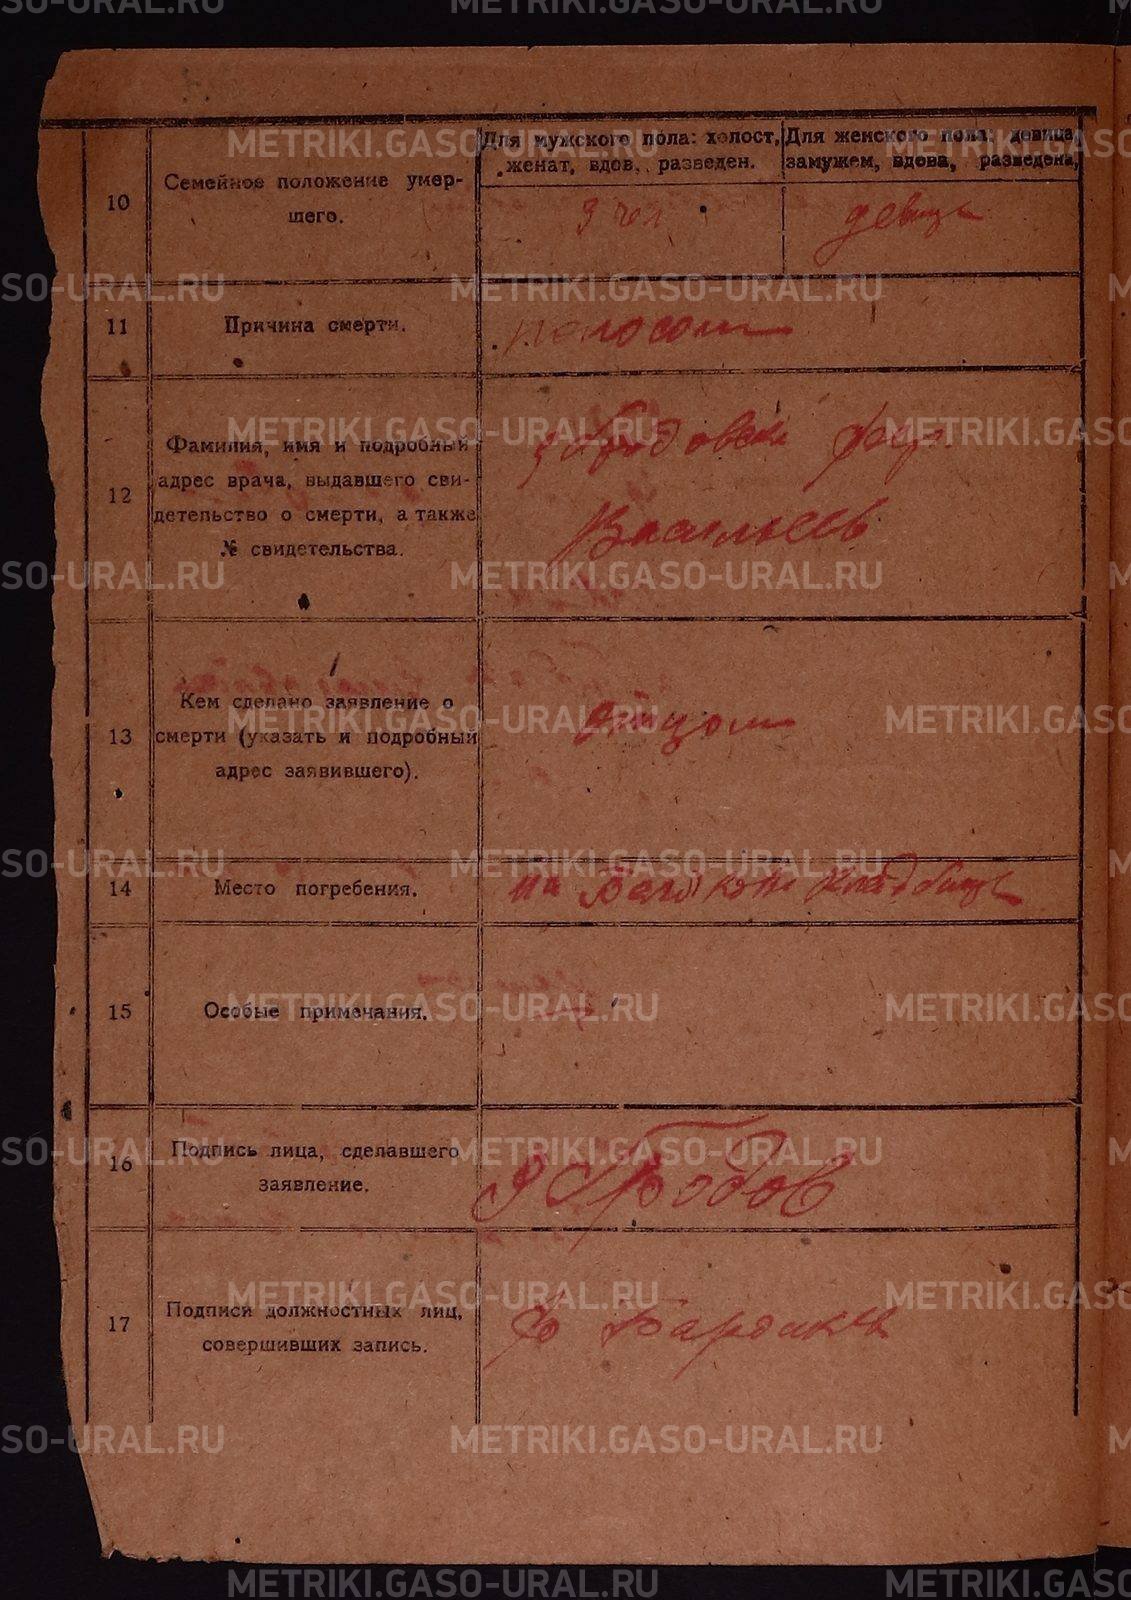 METRIKI.GASO-URAL.RU
Для мужского пола: холост, женат, вдов, разведен.
Для женского пола: девица, замужем, вдова, разведена,
10
Семейное положение умер-
шего.
девица
11
Причина смерти.
поносом
12
Фамилия, имя и подробный
адрес врача, выдавшего сви-
детельство о смерти, а также
№ свидетельства.
Васильев
13
Кем сделано заявление о
смерти (указать и подробный
адрес заявившего).
отцом
14
Место погребения.
на кладбище
15
Особые примечания.
16
Подпись лица, сделавшего
заявление.
17
Подписи должностных лиц,
совершивших запись.